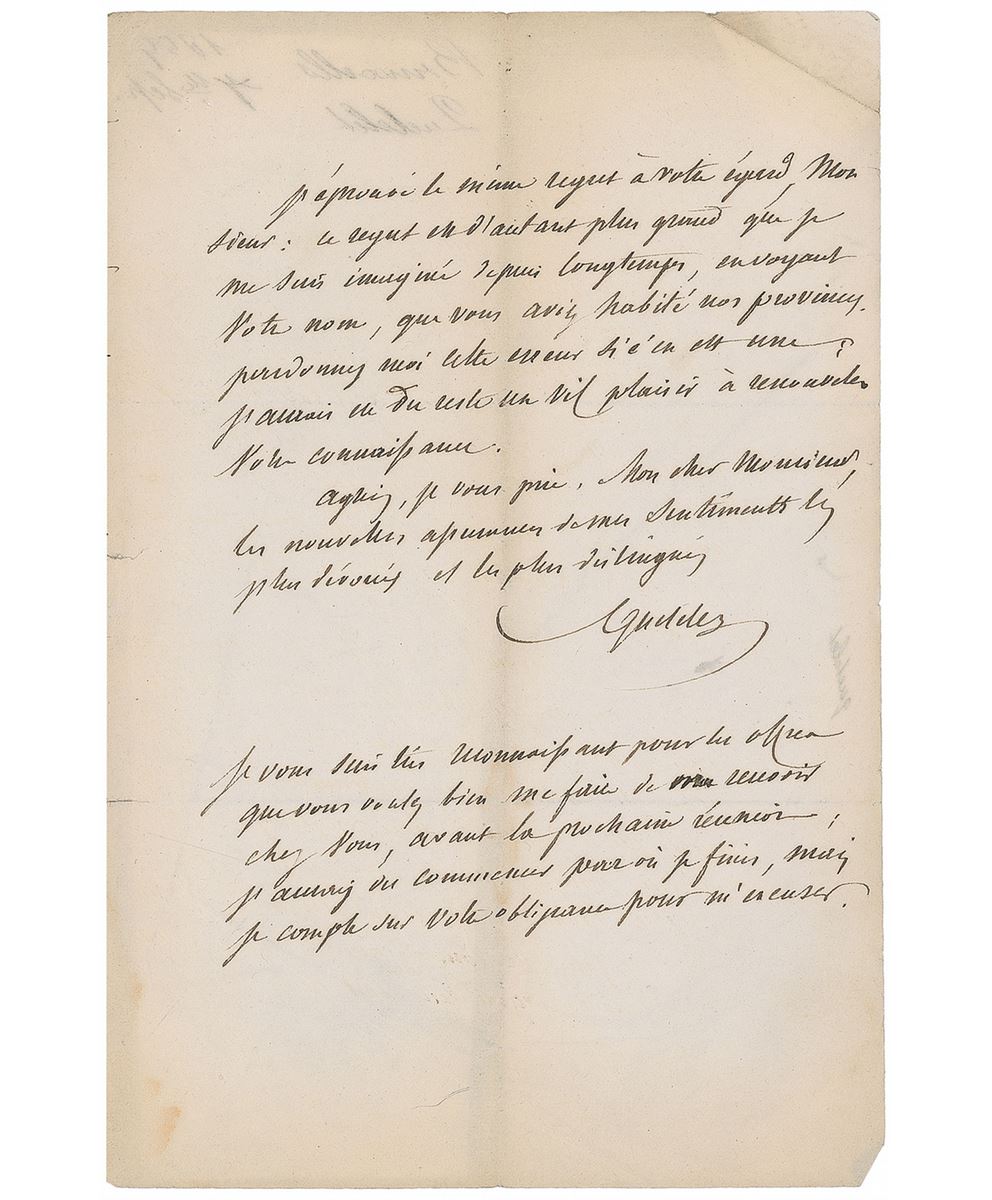 J'éprouve le même regret à votre égard, Mon
sieur : ce regret est d'autant plus grand que je
me suis imaginé depuis longtemps, en voyant
Votre nom, que vous aviez habité nos provinces.
pardonnez moi cette erreur si c'en est une ;
j'aurais eu du reste un vif plaisir à renouveler
Votre connaissance.
Agréez, je vous prie, Mon cher Monsieur,
les nouvelles assurances de mes Sentiments les
plus dévoués et les plus distingués
Quetelet
Je vous suis très reconnaissant pour les offres
que vous voulez bien me faire de recevoir
chez Vous, avant la prochaine réunion ;
j'aurais du commencer par où je finis, mais
je compte sur Votre obligeance pour m'excuser.